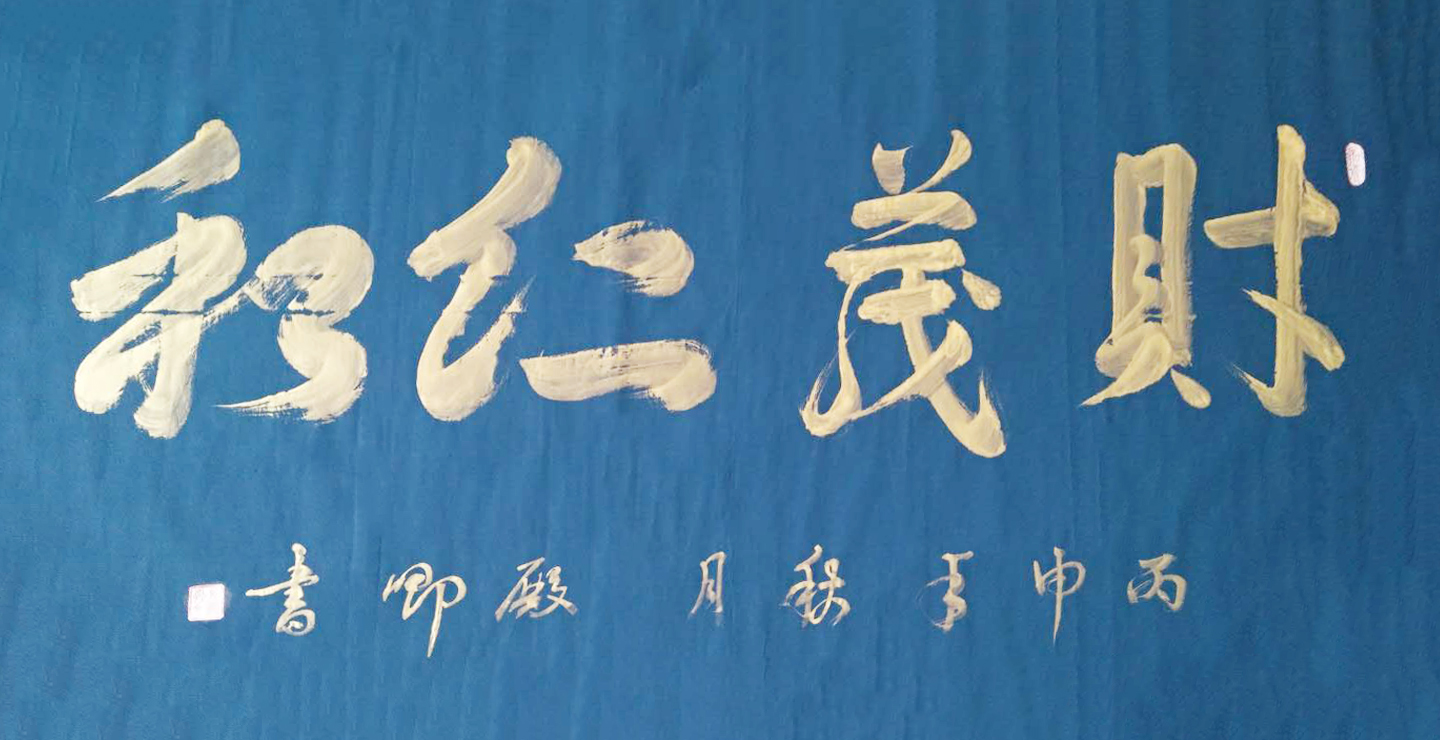 財茂仁和
丙申年秋月 殿卿書